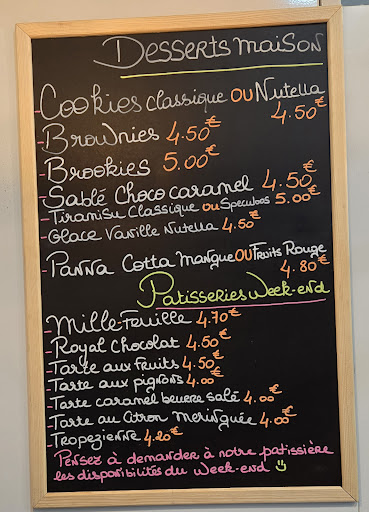 Desserts maison
-Cookies classique ou Nutella
4.50€
-Brownies 4.50€
-Brookies 5.00€
-Sablé Choco caramel 4.50€
-Tiramisu Classique ou Speculoos 5.00€
-Glace Vanille Nutella 4.50€
-Panna Cotta Mangue ou Fruits Rouge
4.80€
Patisseries Week-end
-Mille-Feuille 4.70€
-Royal Chocolat 4.50€
-Tarte aux fruits 4.50€
-Tarte aux pignons 4.00€
-Tarte caramel beurre salé 4.00€
-Tarte au citron meringuée 4.00€
-Tropezienne 4.20€
Pensez à demander à notre patissière
les disponibilités du week-end